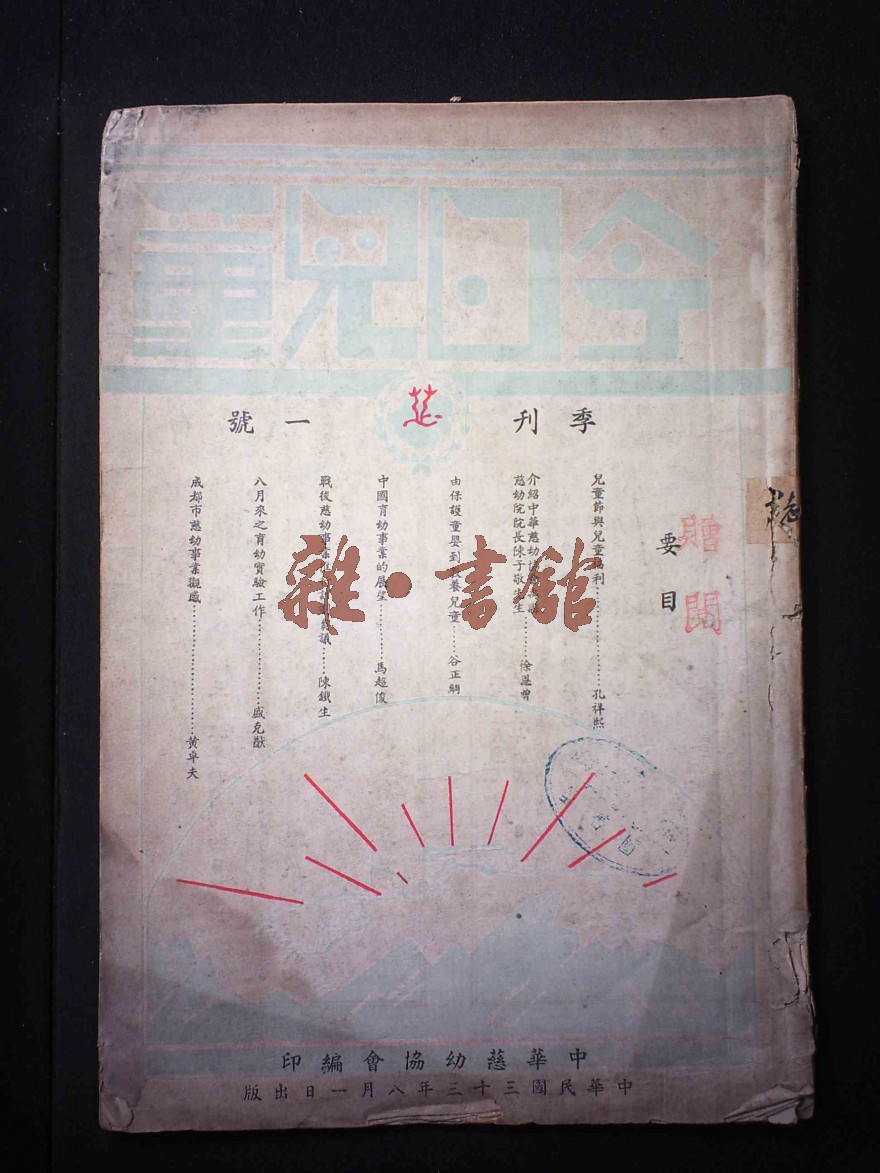 今日兒童
季刊 慈 一號
要目
兒童節與兒童福利……孔祥熙
介紹中華慈幼協會
慈幼院院長陳子敬先生……徐恩曾
由保護童嬰到教養兒童……谷正綱
中國育幼事業的展望……馬超俊
戰後慈幼事業議……陳鐵生
八月來之育幼實驗工作……盛克猷
成都市慈幼事業觀感……黃卓夫
贈閱
雜·書館
中華慈幼協會編印
中華民國三十三年八月一日出版